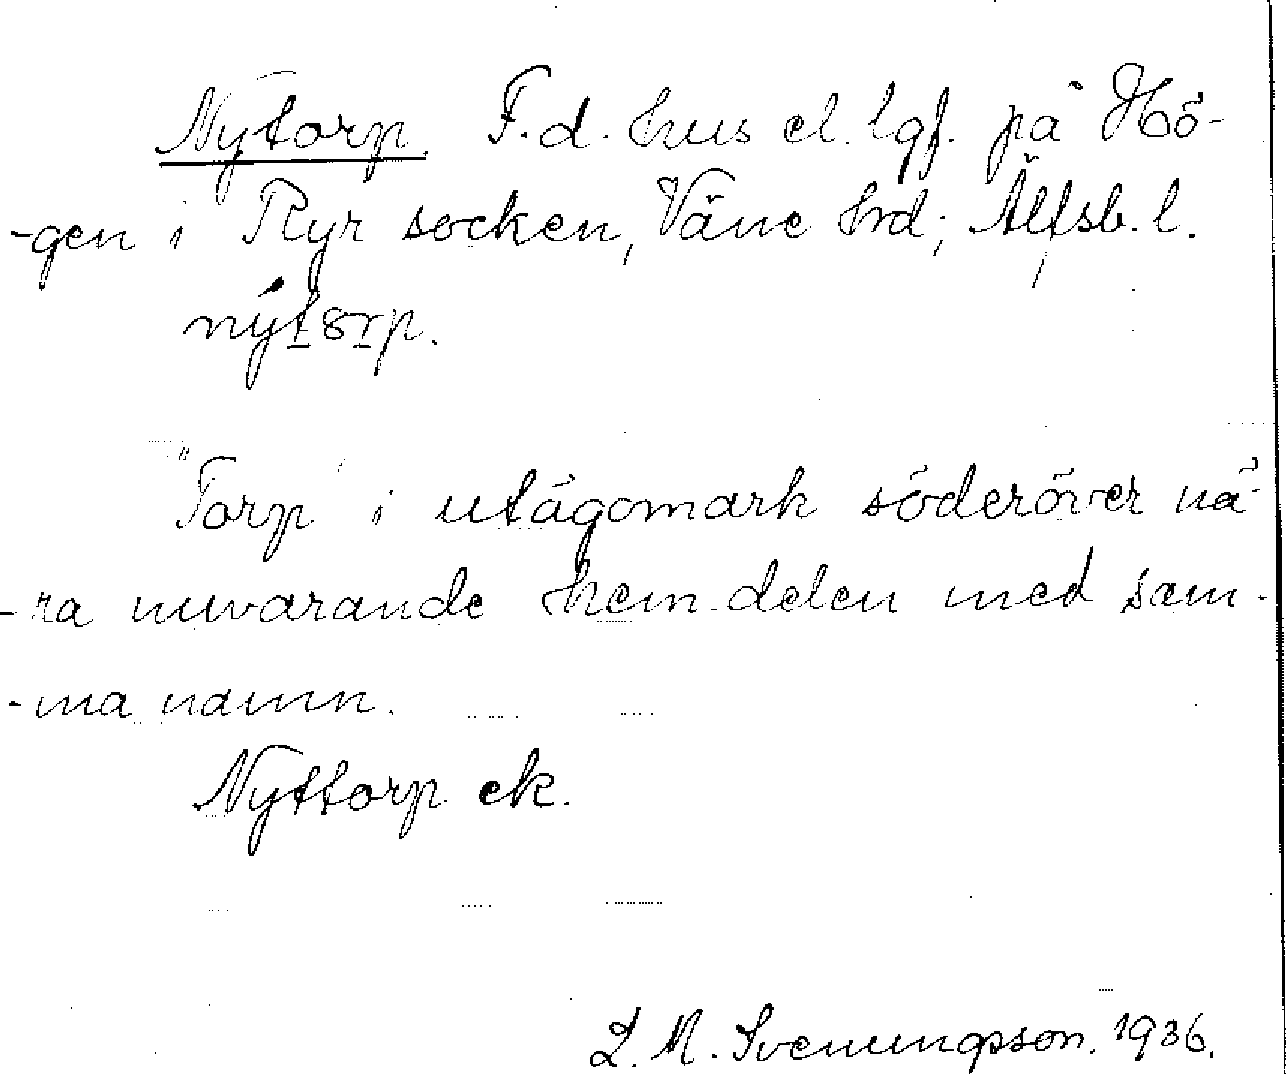 Nytorp. F.d. hus el. lgf. på Hö-
-gen i Ryr socken, Väne hrd; Älfsb. l.
nýtorp.
"Torp" i utägomark söderöver nä-
-ra nuvarande hem.delen med sam-
-ma namn.
Nyttorp ek.
L. M. Svenungsson. 1936.